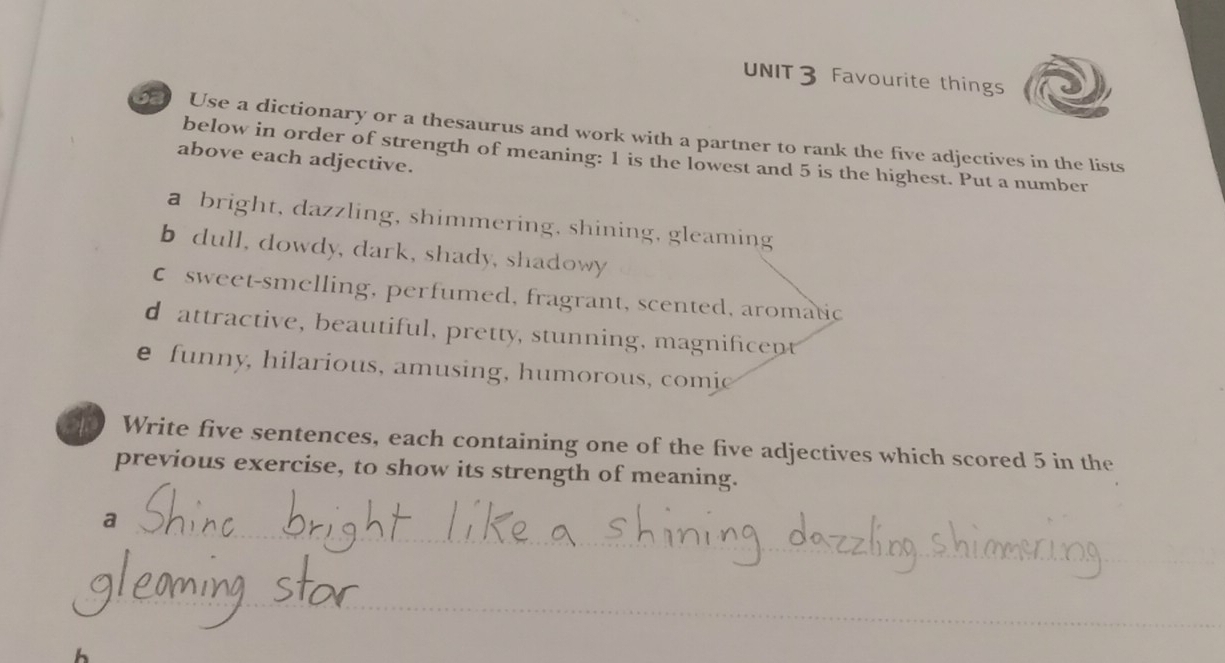 UNIT 3 Favourite things
Use a dictionary or a thesaurus and work with a partner to rank the five adjectives in the lists
below in order of strength of meaning: 1 is the lowest and 5 is the highest. Put a number
above each adjective.
a bright, dazzling, shimmering, shining, gleaming
b dull, dowdy, dark, shady, shadowy
c sweet-smelling, perfumed, fragrant, scented, aromatic
d attractive, beautiful, pretty, stunning, magnificent
e funny, hilarious, amusing, humorous, comic
Write five sentences, each containing one of the five adjectives which scored 5 in the
previous exercise, to show its strength of meaning.
a Shine bright like a shining dazzling shimmering
gleaming star
b